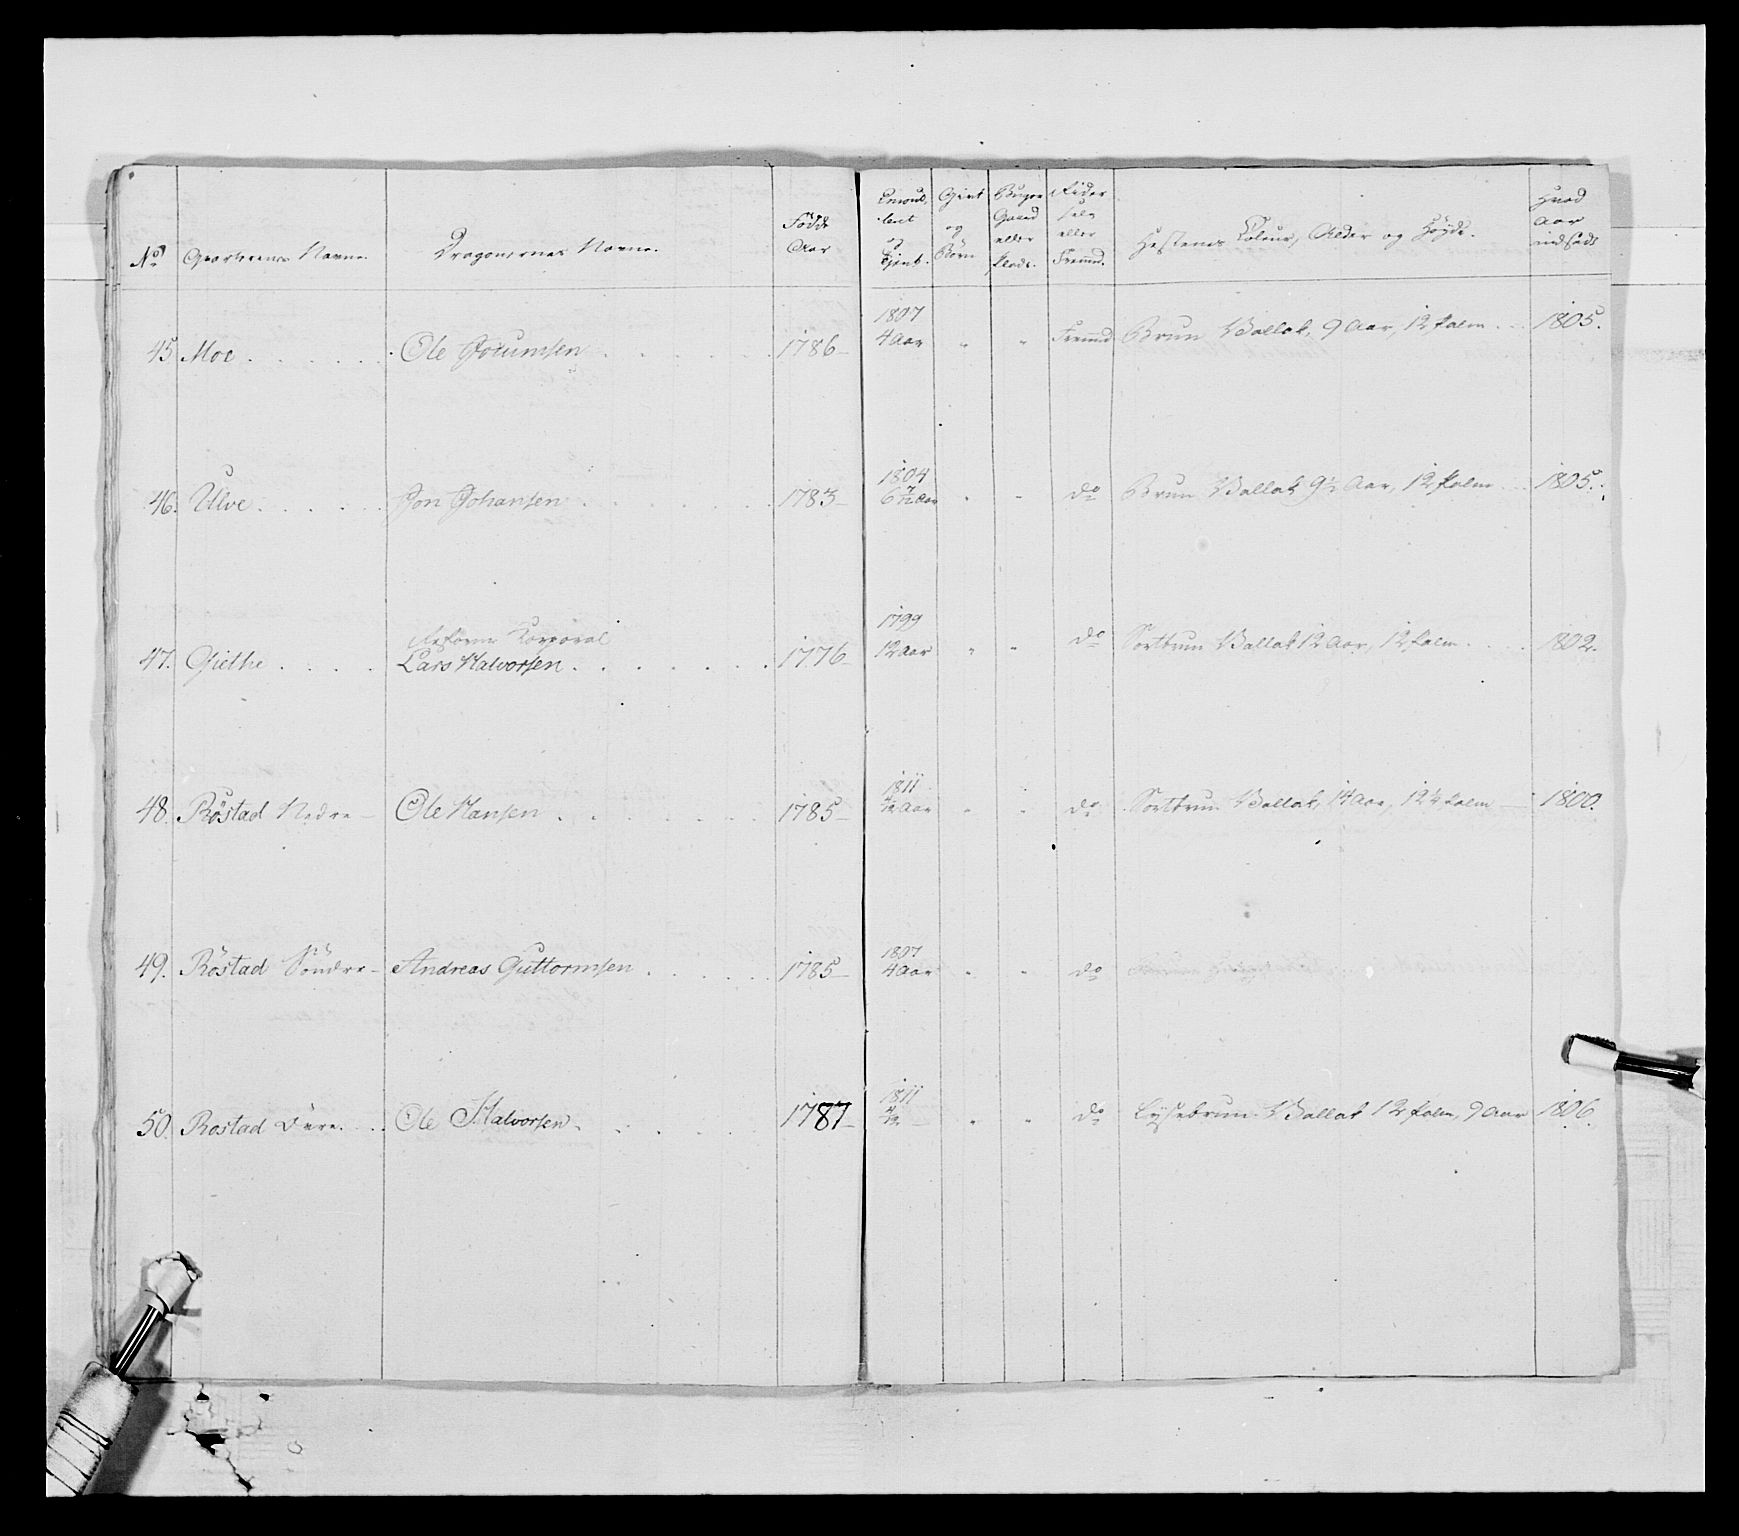 No Qvarterens Navne. Dragonernes Navne. Fødde Aar Enroul,,lert og Tjent. Givt og Børn Buxer Gaard eller Plads. Rider selv eller Fremd. Hestenes Couleur, Alder og Høyde. Hvad Aar indsadt
45. Moe . . . . . . Ole Gorumsen . . . . . . 1786 – 1807 4 Aar " " Fremd Brun Vallak, 9 Aar, 12 palm . . . 1805.
46. Ulve . . . . . Jon Johansen . . . . . . . 1783 – 1804 6 7/12 Aar " " do Brun Vallak 9½ Aar, 12 palm . . . 1805.
Reform Korporal
47. Giethe . . . . Lars Halvorsen . . . . . . . 1776 – 1799 12 Aar " " do Sortbrun Vallak 12 Aar, 12 palm . . . . 1802.
48. Röstad Nedre – Ole Hansen . . . . . . . 1785 – 1811 4/12 Aar " " do Sortbrun Vallak, 14 Aar, 12¼ palm – 1800.
49. Röstad Söndre – Andreas Guttormsen . . . . . 1785 – 1807 4 Aar " " do
50. Rostad Övre . . . Ole Halvorsen . . . . 1787 – 1811 4/12 – " " do Lysebrun Vallak 12 palm, 9 Aar 1806.